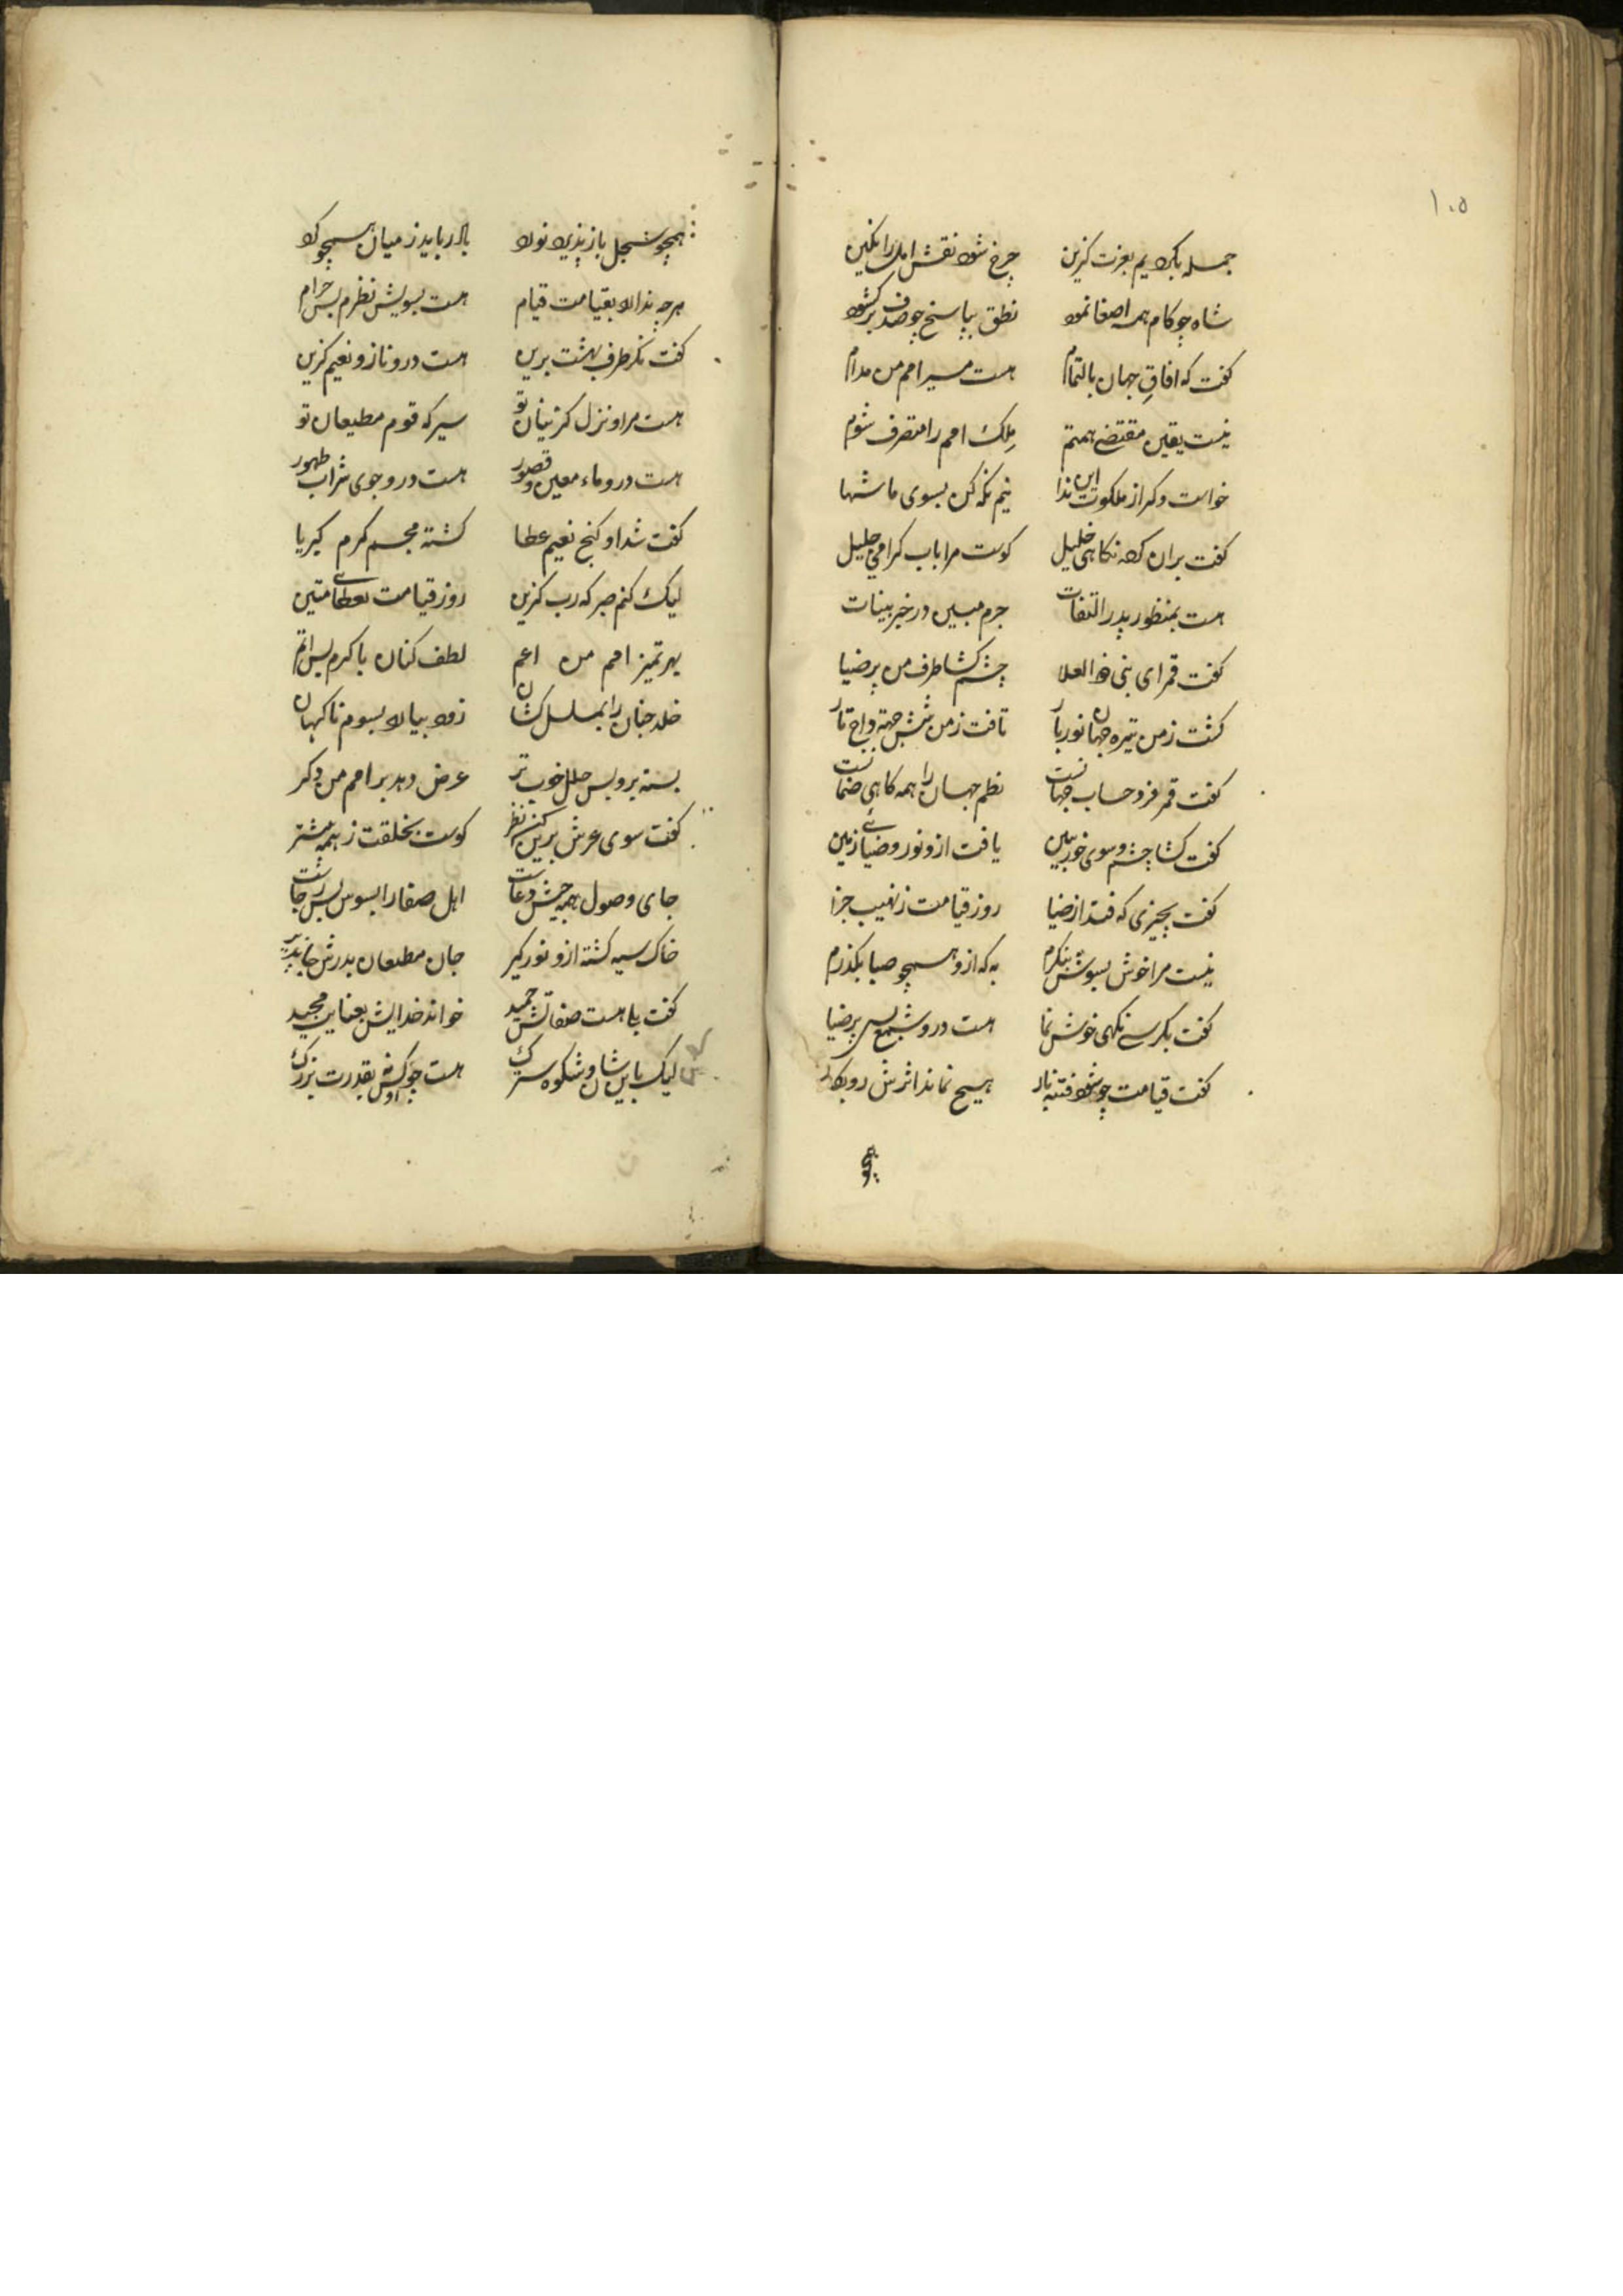 ۱۰۵
جمله بکردیم بعزت گزین چرخ شود نقش امل را نگین
شاه چو کام همه اصغا نمود نطق بپاسخ چو صدف برگشود
کفت که افاق جهان بالتمام هست مسیر امم من مدام
نیست یقین مقتضی همتم ملک امم را متصرف شوم
خواست دکر از ملکوت این ندا نیم نکه کن بسوی ما شها
کفت بران که نکاهی خلیل کوست مرا باب کرامی جلیل
هست بمنظور پدر التفات جرم مبین در خبر بینات
کفت قمر ای نبی ذو العلا چشم کشا طرف من پر ضیا
کشت ز من تیره جهان نوربار تافت ز من شش جهة
کفت قمر حساب جهانست نظم جهان را همه کاهی ضمانست
کفت کشا چشم و سوی خور ببین یافت ازو نور و ضیائے زمین
کفت بچیزی که فتد از ضیا روز قیامت ز نهیب جزا
نیست مرا خوش بسویش بنکرم به که ازو همچو صبا بکذرم
کفت بکرسے نکهی خوش نما هست درو شمع بس پر ضیا
کفت قیامت چو شود فتنه بار هیچ نماند اثرش
همچو سجل باز پذیرد نورد باد رباید ز میان همچو کرد
هرچه ندارد بقیامت قیام هست بسویش نظرم بس حرام
کفت نکر طرف بهشت برین هست درو ناز و نعیم کزین
هست مرا و نزل کزینان تو سیرکه قوم مطیعان تو
هست درو ماء معین و قصور هست درو جوی شراب طهور
کفت شد او کنج نعیم عطا کشته مجسم کرم کبریا
لیک کنم صبر که رب کزین روز قیامت بعطائے متین
بهر تمیز امم من اعم لطف کنان با کرم بس اتم
خلد جنان را بسلاسل کشان زود بیارد بسوم ناکهان
بسته برو بس حلل خوب تر عرض دهد بر امم من دکر
کفت سوی عرش برین کن نظر کوست بخلقت ز همه بیشتر
جای وصول همه جیش دعاست اهل صفا را بسوس بس رجاست
خاک سیه کشته ازو نورکیر جان مطیعان بدرش جاپذیر
کفت بلا هست صفاتش حمید خواند خدایش مجید
لیک باین شان و شکوه سترک هست چو بقدرت بزرک